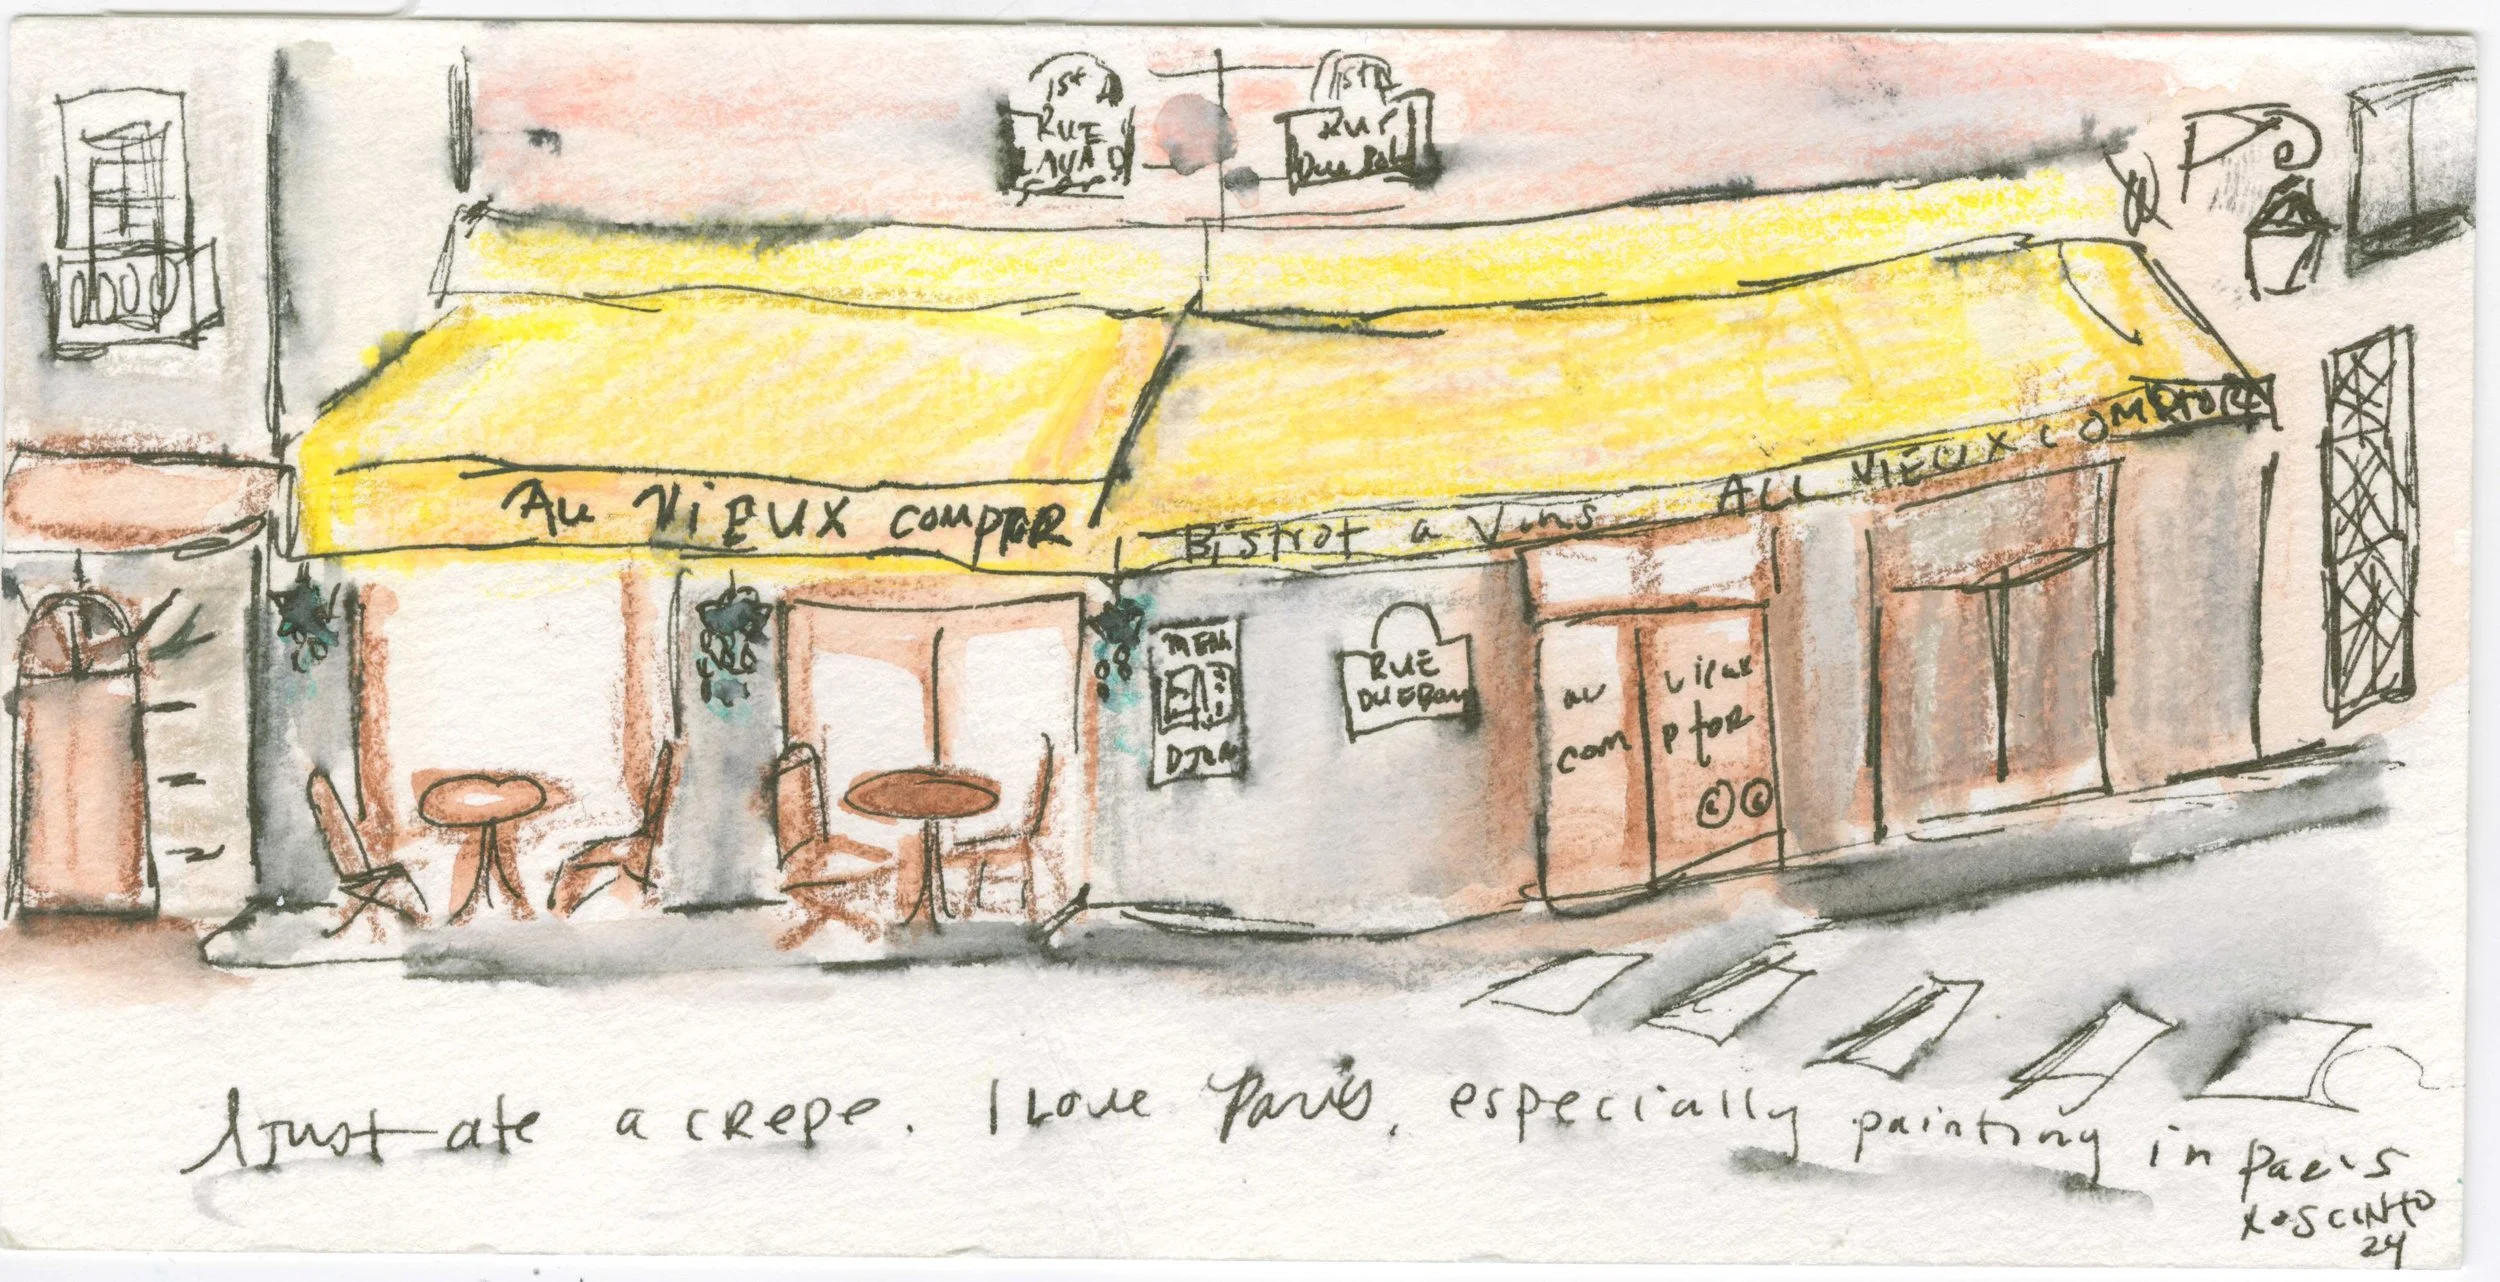 1st A
RUE
LAVAND
1st A
RUE
DU
AU VIEUX COMPTOR
Bistrot a Vins
AU VIEUX COMPTOR
MENU
RUE
DU
au vieux
com ptor
I just ate a crepe. I love Paris, especially painting in Paris
24